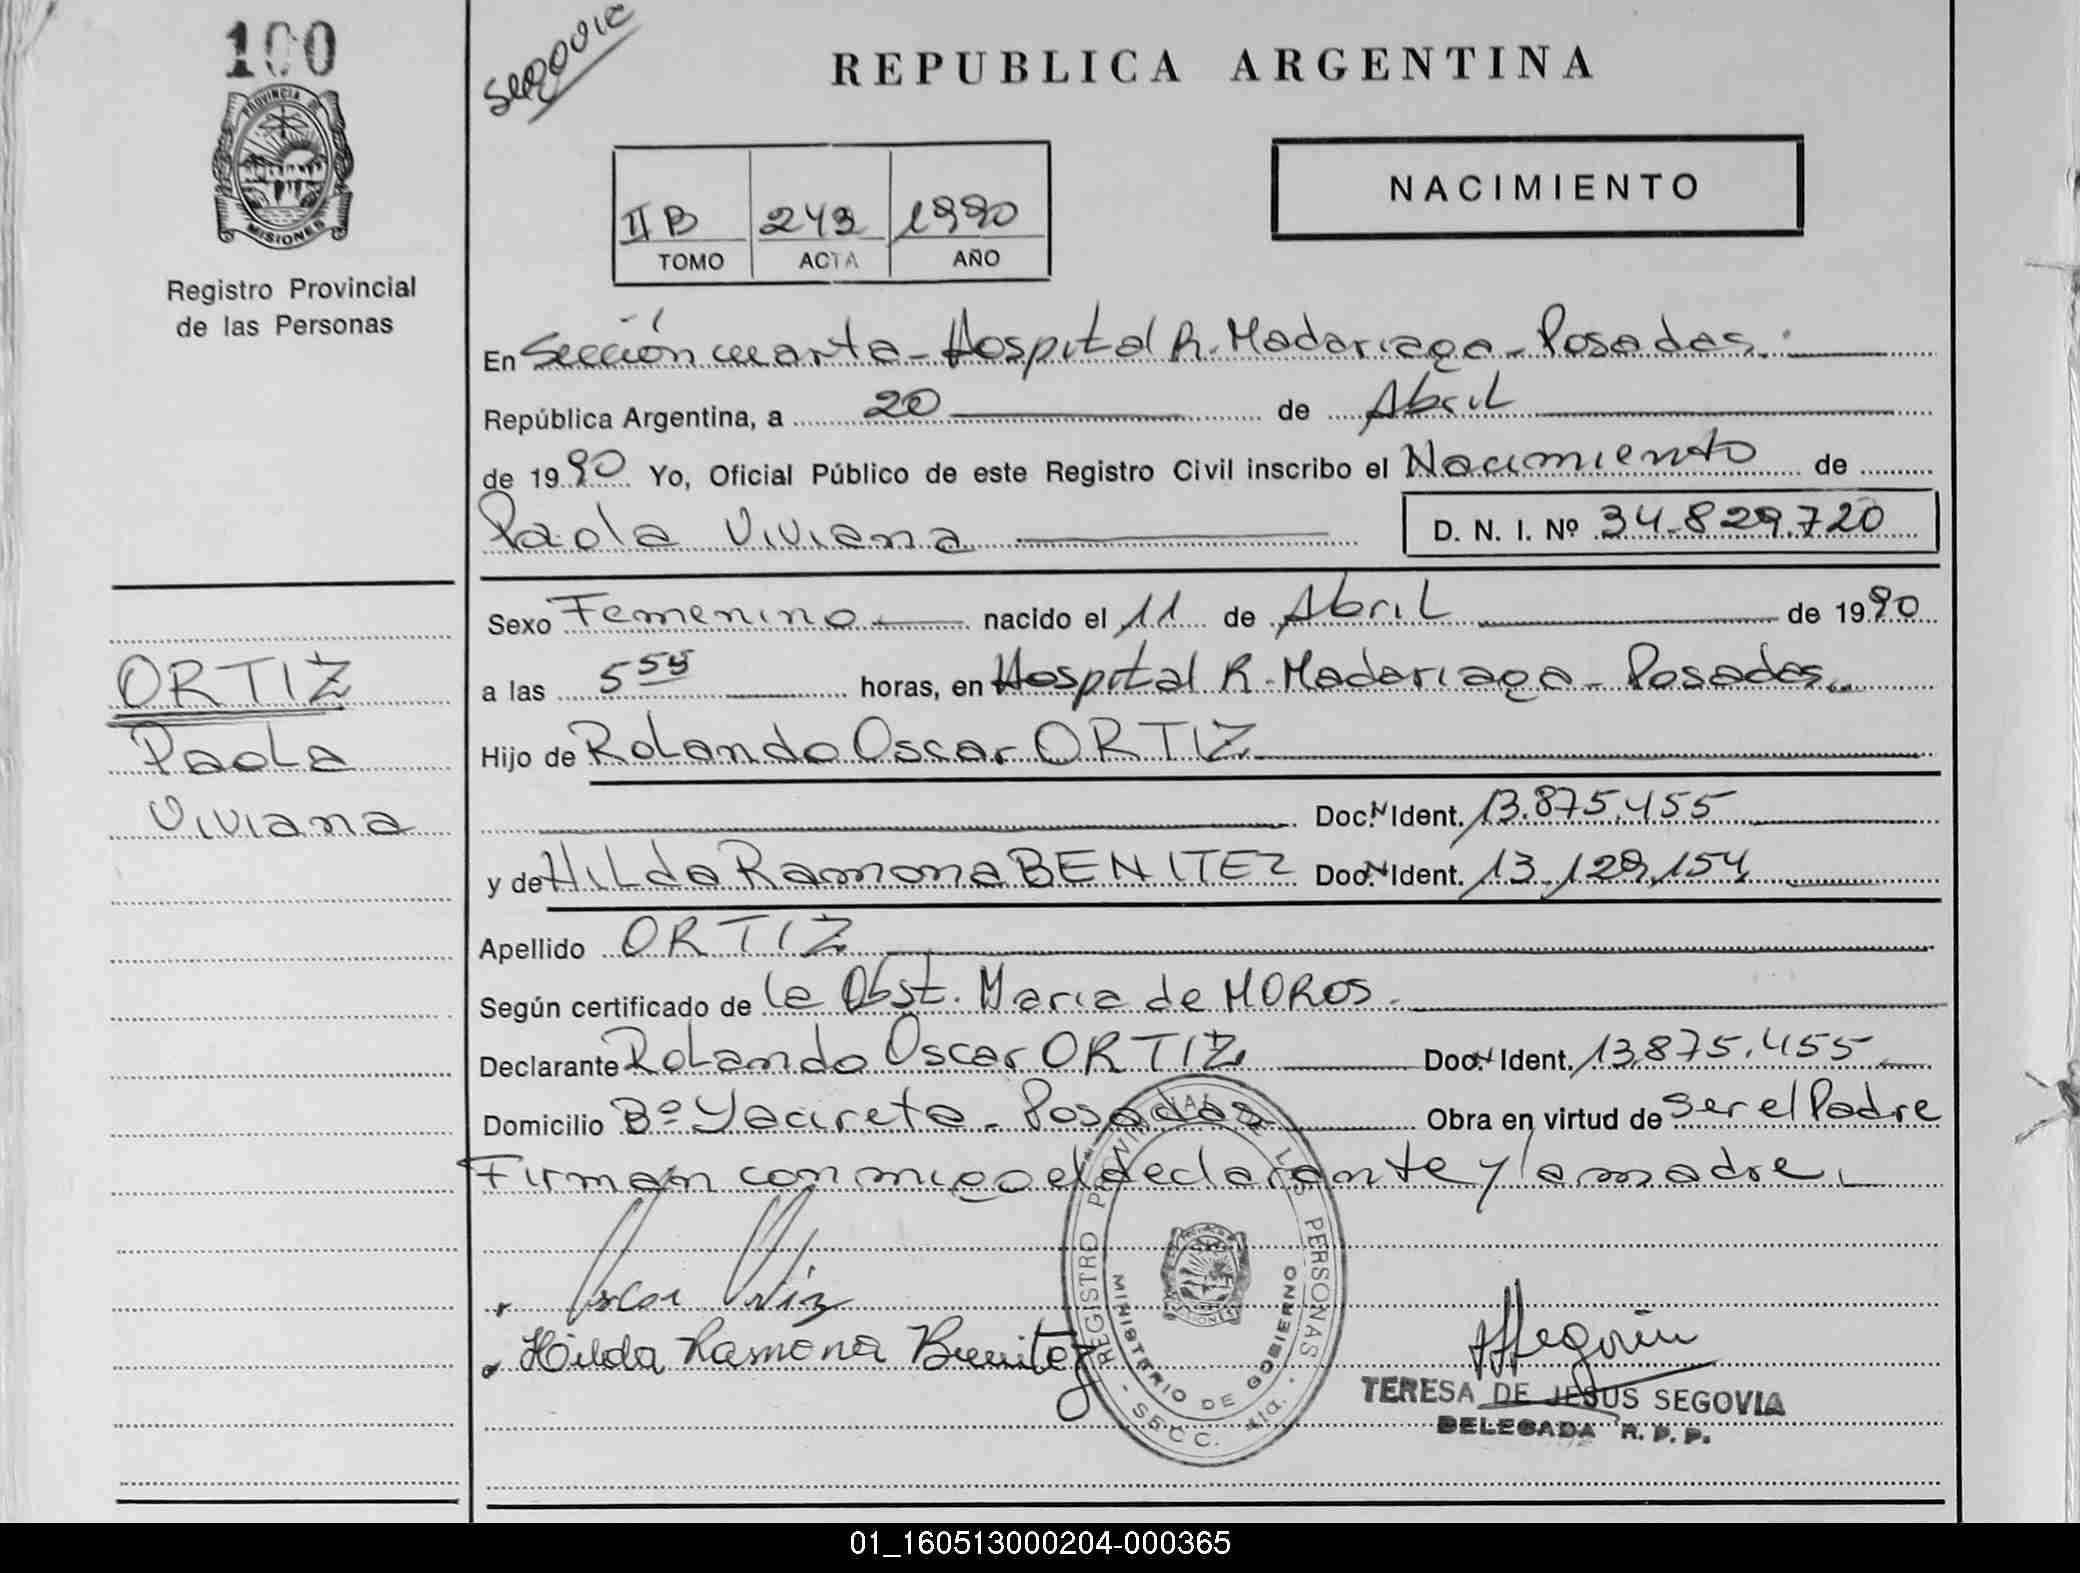 100
Segovia
REPUBLICA ARGENTINA
PROVINCIA DE
MISIONES
Registro Provincial
de las Personas
NACIMIENTO
II B 249 1990
TOMO ACTA AÑO
En Sección cuarta - Hospital R. Madariaga - Posadas.
República Argentina, a 20 de Abril
de 1990 Yo, Oficial Público de este Registro Civil inscribo el Nacimiento de
Paola Viviana D. N. I. Nº 34.829.720
Sexo Femenino nacido el 11 de Abril de 1990
a las 5 55 horas, en Hospital R. Madariaga - Posadas.
Hijo de Rolando Oscar ORTIZ
Doc. N Ident. 13.875.455
y de Hilda Ramona BENITEZ Doc. N Ident. 13.129.154
Apellido ORTIZ
Según certificado de la Obst. Maria de MOROS.
Declarante Rolando Oscar ORTIZ Doc. N Ident. 13.875.455
Domicilio Bº Yacireta - Posadas Obra en virtud de ser el Padre
Firman conmigo el declarante y la madre.
ORTIZ
Paola
Viviana
Oscar Ortiz
Hilda Ramona Benitez
REGISTRO PROVINCIAL DE LAS PERSONAS
MINISTERIO DE GOBIERNO
- SECC. 4ta. -
MISIONES
Segovia
TERESA DE JESUS SEGOVIA
DELEGADA R. P. P.
01_160513000204-000365